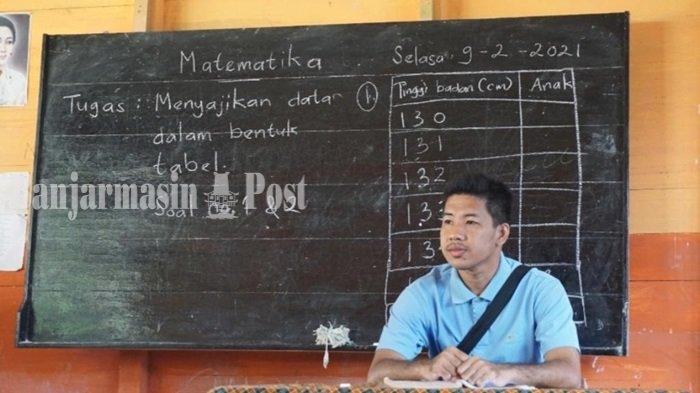 Matematika
Selasa, 9-2-2021
Tugas : Menyajikan data
dalam bentuk
tabel.
Soal 1 & 2
1.
Tinggi badan (cm) Anak
130
131
132
13
13
Banjarmasin Post